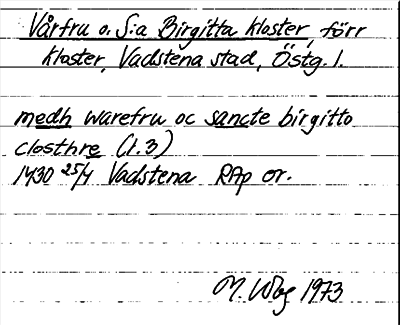 Vårfru o. S:a Birgitta kloster, förr
kloster, Vadstena stad, Östg. l.
medh warefru oc sancte birgitto
closthre (l.3)
1430 25/4 Vadstena RAp or.
M. 1973